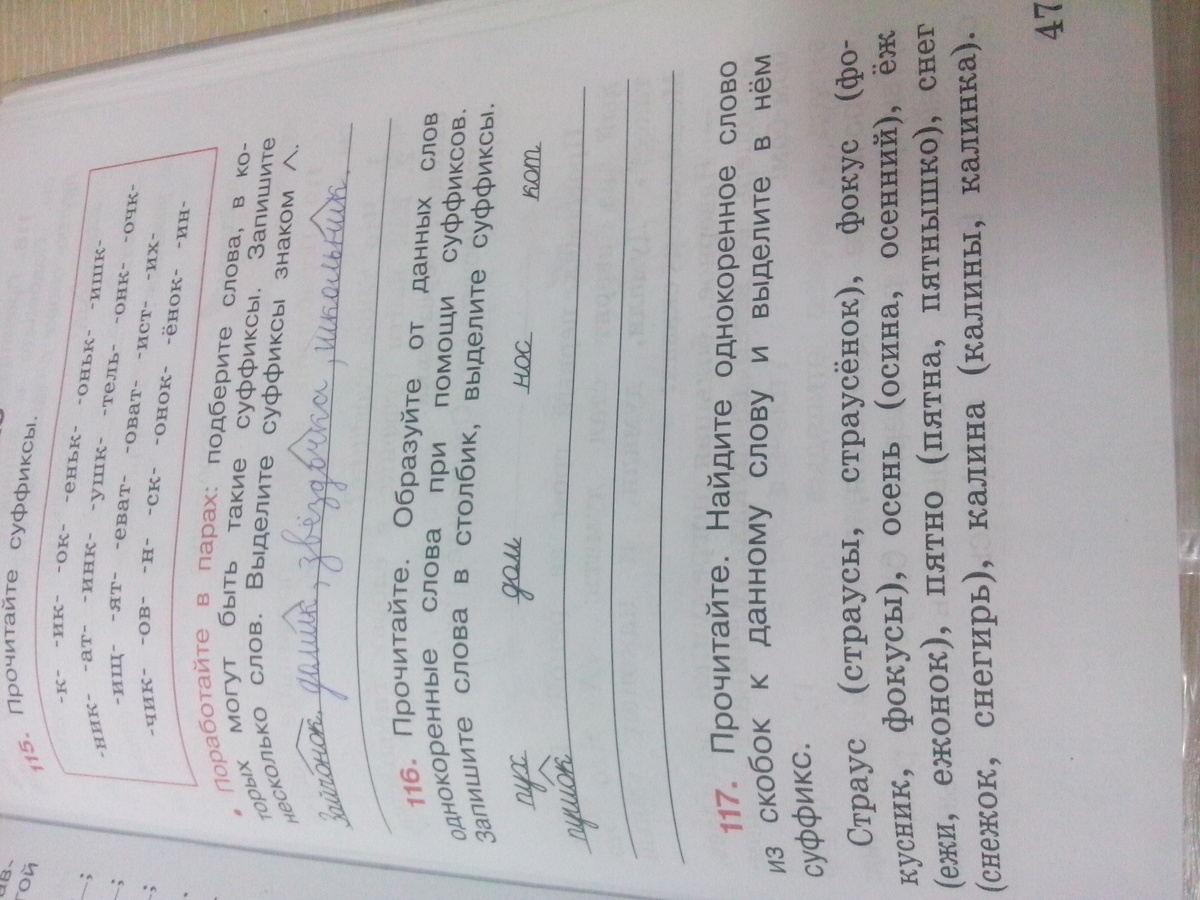 ав-
той
—;
—;
—;
.
115. Прочитайте суффиксы.
-к- -ик- -ок- -еньк- -оньк- -ишк-
-ник- -ат- -инк- -ушк- -тель- -онк- -очк-
-ищ- -ят- -еват- -оват- -ист- -их-
-чик- -ов- -н- -ск- -онок- -ёнок- -ин-
• Поработайте в парах: подберите слова, в ко-
торых могут быть такие суффиксы. Запишите
несколько слов. Выделите суффиксы знаком ^.
Зайчонок, домик, звёздочка, школьник
116. Прочитайте. Образуйте от данных слов
однокоренные слова при помощи суффиксов.
Запишите слова в столбик, выделите суффиксы.
пух дом нос кот
пушок
117. Прочитайте. Найдите однокоренное слово
из скобок к данному слову и выделите в нём
суффикс.
Страус (страусы, страусёнок), фокус (фо-
кусник, фокусы), осень (осина, осенний), ёж
(ежи, ежонок), пятно (пятна, пятнышко), снег
(снежок, снегирь), калина (калины, калинка).
47